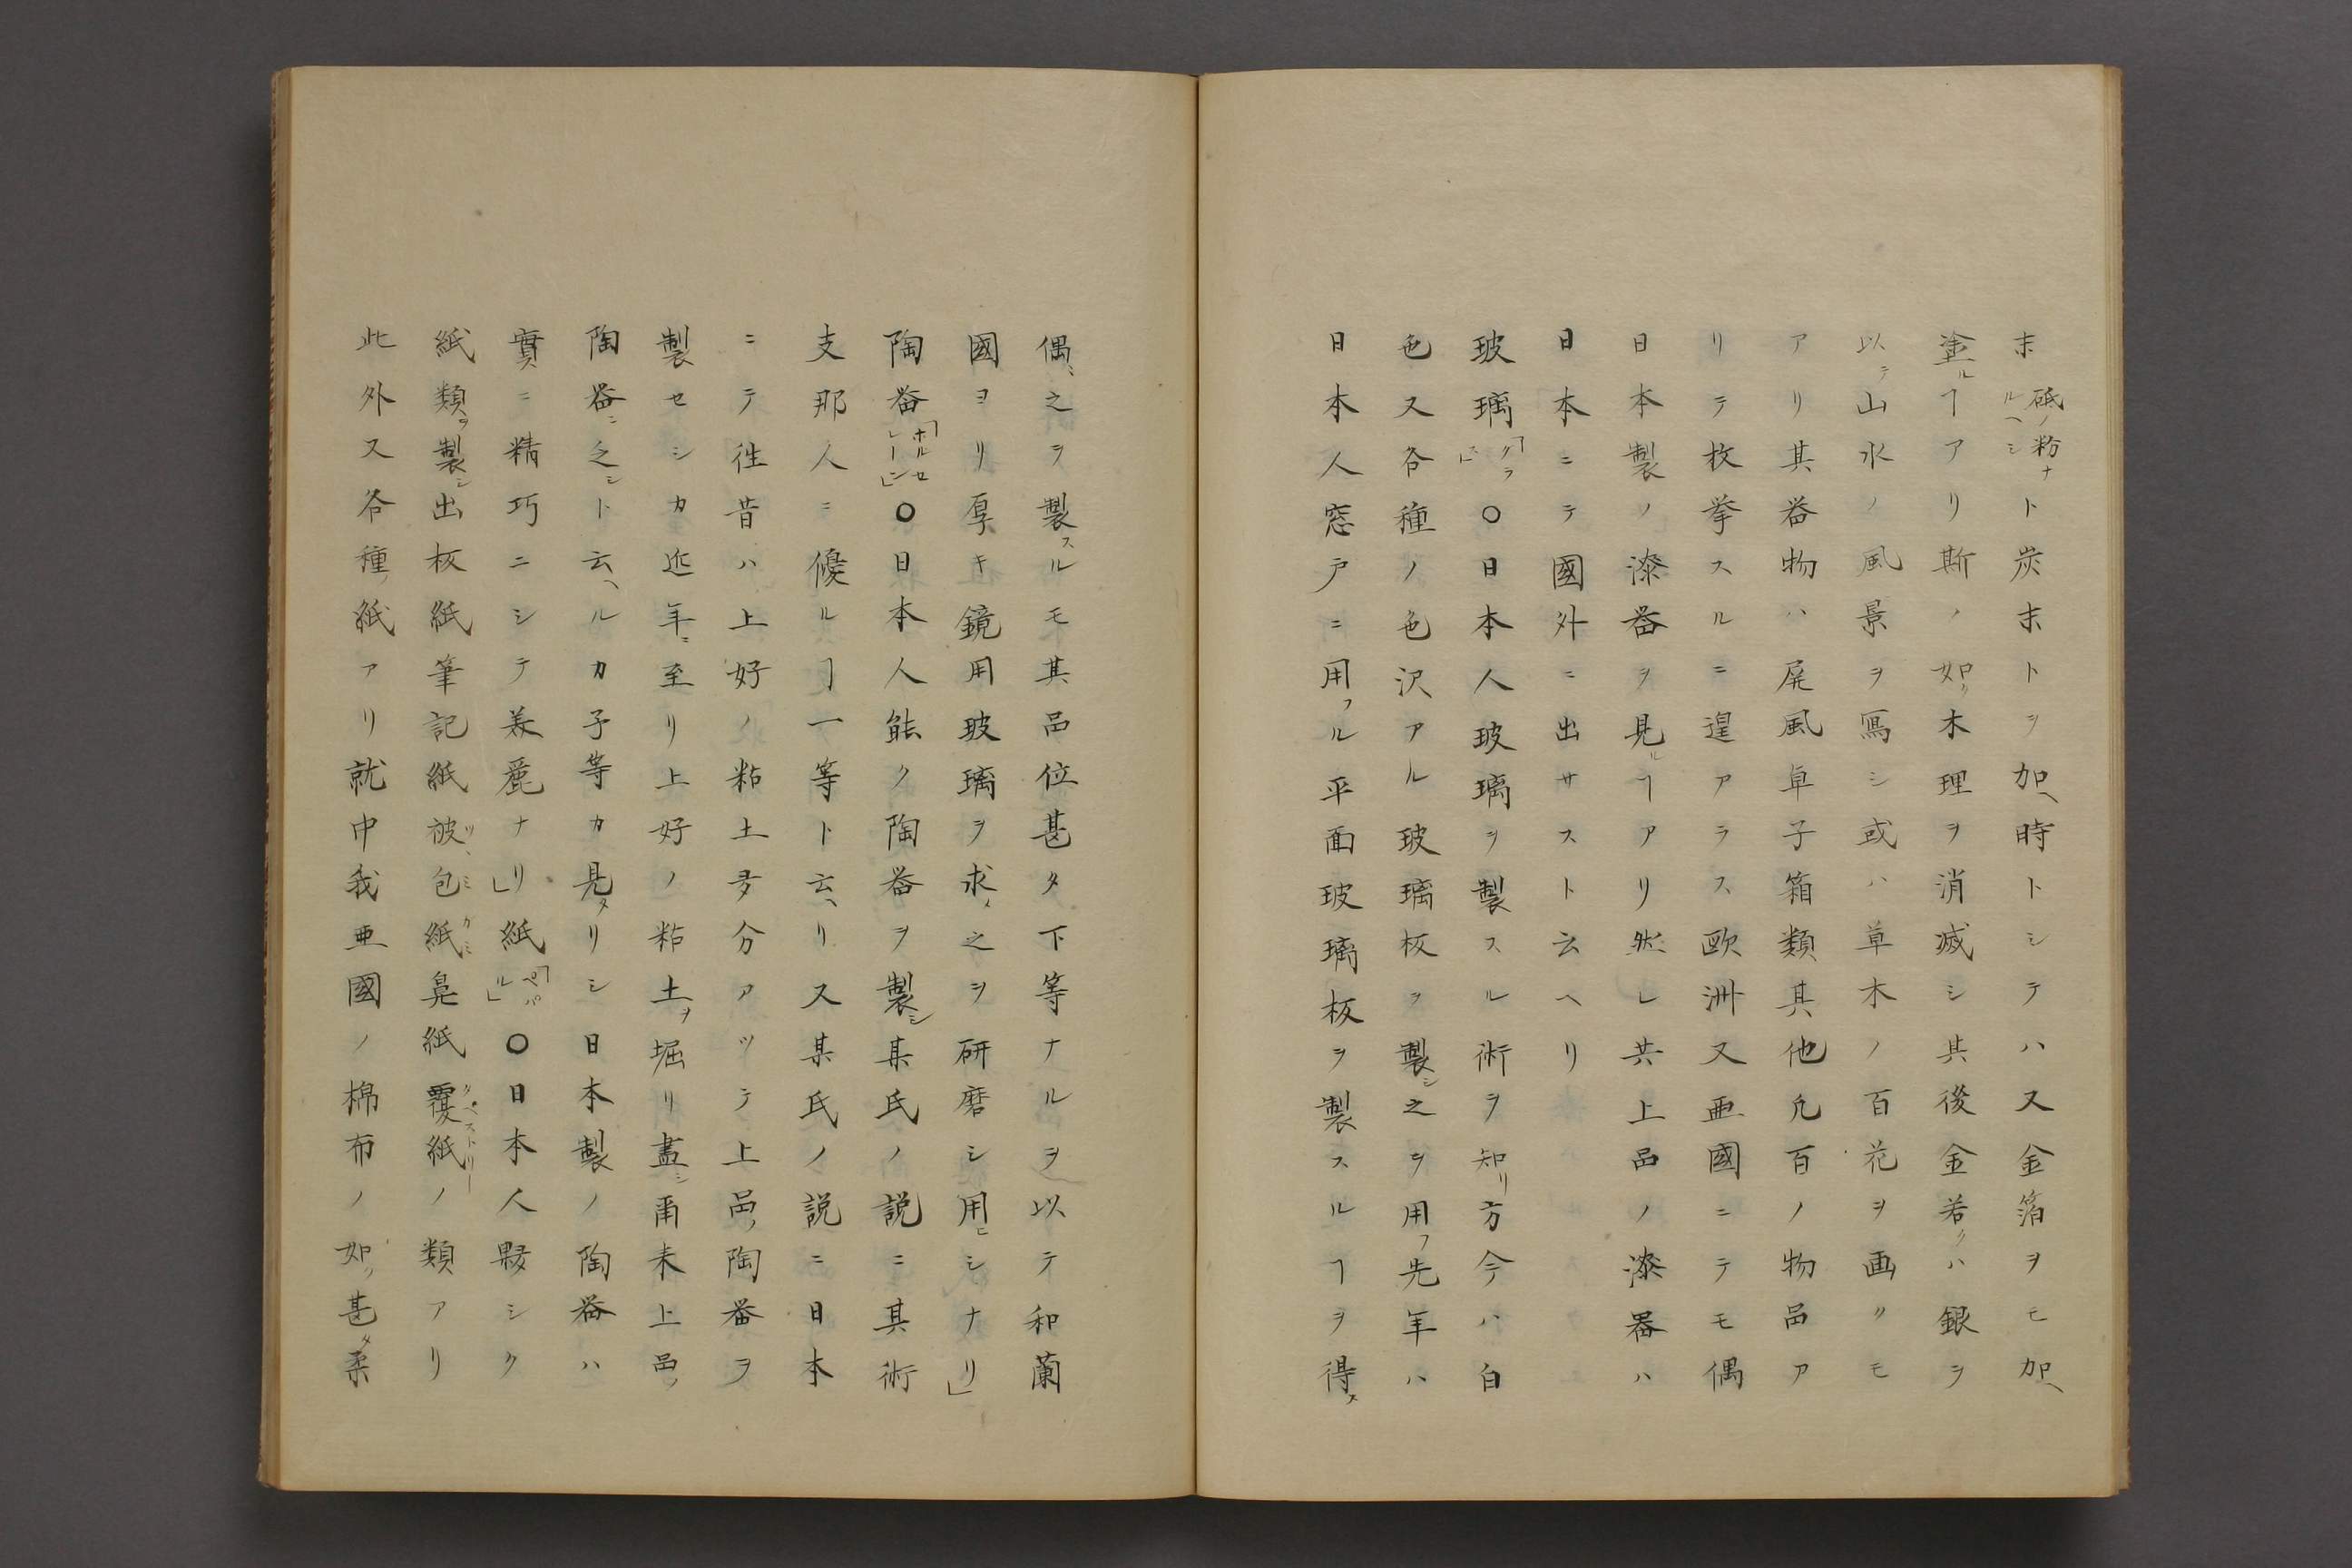 末砥ノ粉ナルヘシト炭末トヲ加ヘ時トシテハ又金箔ヲモ加ヘ
塗ルヿアリ斯ノ如ク木理ヲ消滅シ其後金若クハ銀ヲ
以テ山水ノ風景ヲ寫シ或ハ草木ノ百花ヲ画クモ
アリ其器物ハ屏風卓子箱類其他凡百ノ物品ア
リテ枚挙スルニ遑アラス歐洲又亜國ニテモ偶
日本製ノ漆器ヲ見ルヿアリ然レ共上品ノ漆器ハ
日本ニテ國外ニ出サスト云ヘリ
玻璃「グラス」○日本人玻璃ヲ製スル術ヲ知リ方今ハ白
色又各種ノ色沢アル玻璃板ヲ製シ之ヲ用フ先年ハ
日本人窓戸ニ用フル平面玻璃板ヲ製スルヿヲ得ス
偶ミ之ヲ製スルモ其品位甚タ下等ナルヲ以テ和蘭
國ヨリ厚キ鏡用玻璃ヲ求メ之ヲ研磨シ用ヒシナリ」
陶器「ホルセレーン」○日本人能ク陶器ヲ製シ某氏ノ説ニ其術
支那人ニ優ルヿ一等ト云ヘリ又某氏ノ説ニ日本
ニテ徃昔ハ上好ノ粘土多分アツテ上品ノ陶器ヲ
製セシカ近年ニ至リ上好ノ粘土ヲ堀リ盡シ爾来上品ノ
陶器ニ乏シト云ヘルカ予等カ見タリシ日本製ノ陶器ハ
實ニ精巧ニシテ美麗ナリ」紙「ペパル」○日本人夥シク
紙類ヲ製シ出板紙筆記紙被包紙鼻紙覆紙ノ類アリ
此外又各種ノ紙アリ就中我亜國ノ棉布ノ如ク甚タ柔